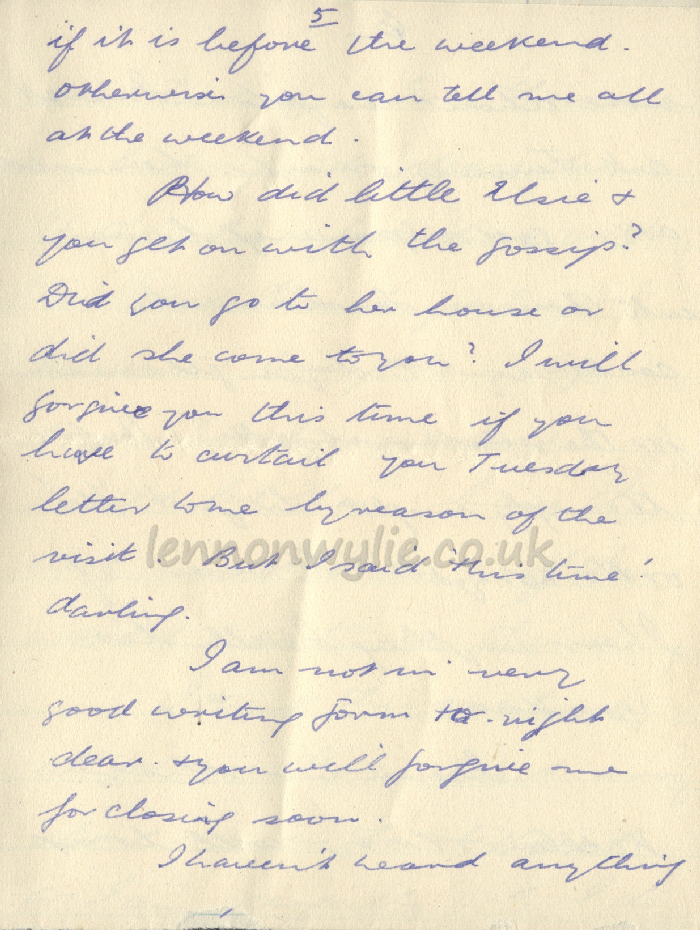 5
if it is before the weekend.
otherwise you can tell me all
at the weekend.
How did little Elsie &
you get on with the gossip?
Did you go to her house or
did she come to you? I will
forgive you this time if you
have to curtail you Tuesday
letter to me by reason of the
visit. But I said 'this time'
lennonwylie.co.uk
darling.
I am not in very
good writing form to-night
dear. & you will forgive me
for closing soon.
I haven't heard anything